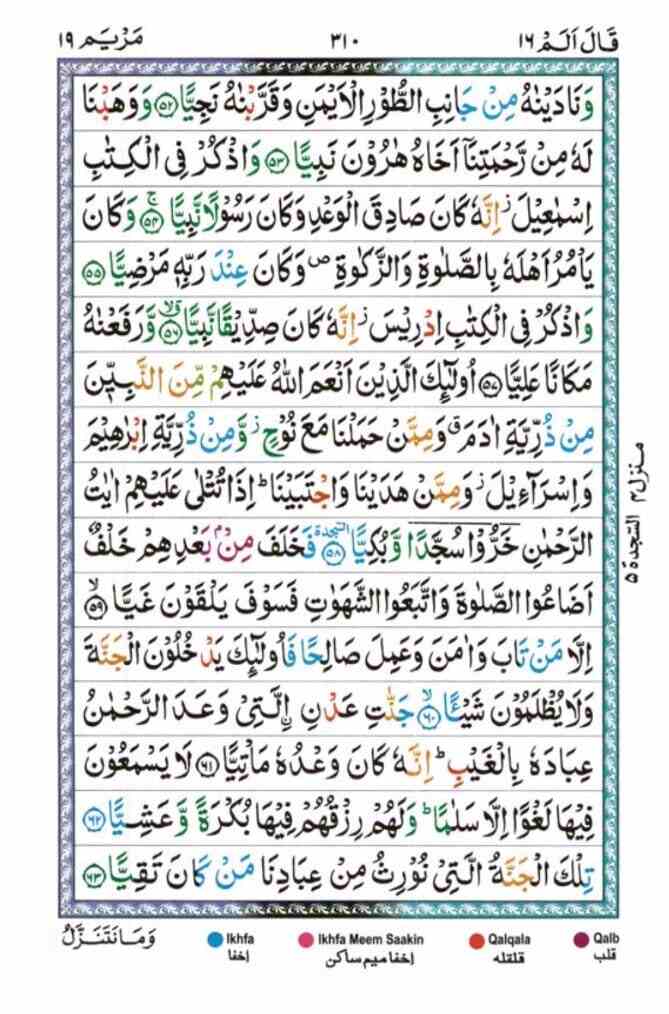 قَالَ اَلَمْ ١٦ ٣١٠ مَرْيَم ١٩
وَنَادَيْنٰهُ مِنْ جَانِبِ الطُّوْرِ الْاَيْمَنِ وَقَرَّبْنٰهُ نَجِيًّا ﴿٥٢﴾ وَوَهَبْنَا
لَهٗ مِنْ رَّحْمَتِنَاۤ اَخَاهُ هٰرُوْنَ نَبِيًّا ﴿٥٣﴾ وَاذْكُرْ فِى الْكِتٰبِ
اِسْمٰعِيْلَ ز اِنَّهٗ كَانَ صَادِقَ الْوَعْدِ وَكَانَ رَسُوْلًا نَّبِيًّا ۚ ﴿٥٤﴾ وَكَانَ
يَاْمُرُ اَهْلَهٗ بِالصَّلٰوةِ وَالزَّكٰوةِ ص وَكَانَ عِنْدَ رَبِّهٖ مَرْضِيًّا ﴿٥٥﴾
وَاذْكُرْ فِى الْكِتٰبِ اِدْرِيْسَ ز اِنَّهٗ كَانَ صِدِّيْقًا نَّبِيًّا ۙ ﴿٥٦﴾ وَّرَفَعْنٰهُ
مَكَانًا عَلِيًّا ﴿٥٧﴾ اُولٰٓئِكَ الَّذِيْنَ اَنْعَمَ اللّٰهُ عَلَيْهِمْ مِّنَ النَّبِيّٖنَ
مِنْ ذُرِّيَّةِ اٰدَمَ ق وَمِمَّنْ حَمَلْنَا مَعَ نُوْحٍ ز وَّمِنْ ذُرِّيَّةِ اِبْرٰهِيْمَ
وَاِسْرَآءِيْلَ ز وَمِمَّنْ هَدَيْنَا وَاجْتَبَيْنَا ؕ اِذَا تُتْلٰى عَلَيْهِمْ اٰيٰتُ
الرَّحْمٰنِ خَرُّوْا سُجَّدًا وَّبُكِيًّا السجدة ﴿٥٨﴾ فَخَلَفَ مِنْۢ بَعْدِهِمْ خَلْفٌ
اَضَاعُوا الصَّلٰوةَ وَاتَّبَعُوا الشَّهَوٰتِ فَسَوْفَ يَلْقَوْنَ غَيًّا ۙ ﴿٥٩﴾
اِلَّا مَنْ تَابَ وَاٰمَنَ وَعَمِلَ صَالِحًا فَاُولٰٓئِكَ يَدْخُلُوْنَ الْجَنَّةَ
وَلَا يُظْلَمُوْنَ شَيْـًٔا ۙ ﴿٦٠﴾ جَنّٰتِ عَدْنِ ۨ الَّتِىْ وَعَدَ الرَّحْمٰنُ
عِبَادَهٗ بِالْغَيْبِ ؕ اِنَّهٗ كَانَ وَعْدُهٗ مَاْتِيًّا ﴿٦١﴾ لَا يَسْمَعُوْنَ
فِيْهَا لَغْوًا اِلَّا سَلٰمًا ؕ وَلَهُمْ رِزْقُهُمْ فِيْهَا بُكْرَةً وَّعَشِيًّا ﴿٦٢﴾
تِلْكَ الْجَنَّةُ الَّتِىْ نُوْرِثُ مِنْ عِبَادِنَا مَنْ كَانَ تَقِيًّا ﴿٦٣﴾
وَمَا نَتَنَزَّلُ
منزل ٤ السجدة ٥
Ikhfa Ikhfa Meem Saakin Qalqala Qalb
إخفا إخفا ميم ساكن قلقله قلب